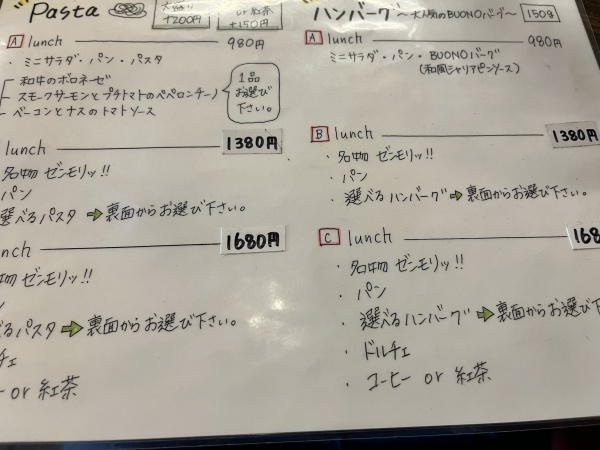 Pasta
大盛り
+200円
or 紅茶
+150円
A lunch 980円
・ミニサラダ・パン・パスタ
和牛のボロネーゼ
スモークサーモンとプチトマトのペペロンチーノ
ベーコンとナスのトマトソース
1品
お選び
下さい。
lunch 1380円
名物 ゼンモリッ!!
パン
選べるパスタ➡裏面からお選び下さい。
nch 1680円
物 ゼンモリッ!!
べるパスタ➡裏面からお選び下さい。
チェ
ー or 紅茶
ハンバーグ ～大人気のBUONOバーグ～ 150g
A lunch 980円
ミニサラダ・パン・BUONOバーグ
(和風シャリアピンソース)
B lunch 1380円
・名物 ゼンモリッ!!
・パン
・選べるハンバーグ➡裏面からお選び下さい。
C lunch 168
・名物 ゼンモリッ!!
・パン
・選べるハンバーグ➡裏面からお選び下
・ドルチェ
・コーヒー or 紅茶